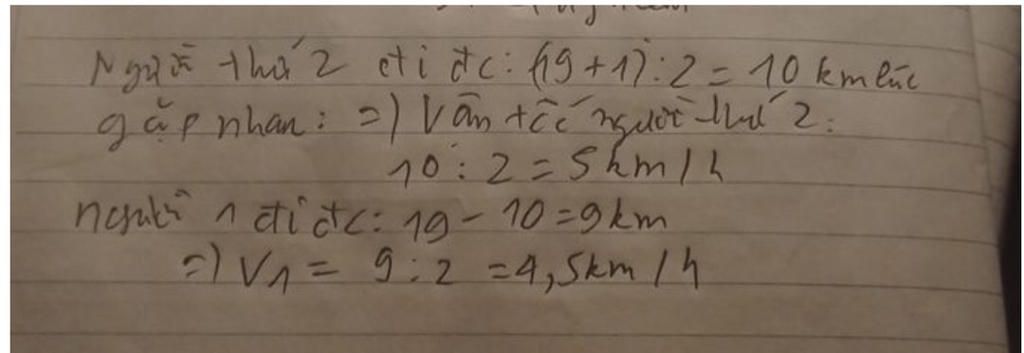 Người thứ 2 đi đc: (19+1):2 = 10 km lúc
gặp nhau: =) Vận tốc người thứ 2:
10 : 2 = 5 km / h
người 1 đi đc: 19 - 10 = 9 km
=) V1 = 9 : 2 = 4,5 km / h